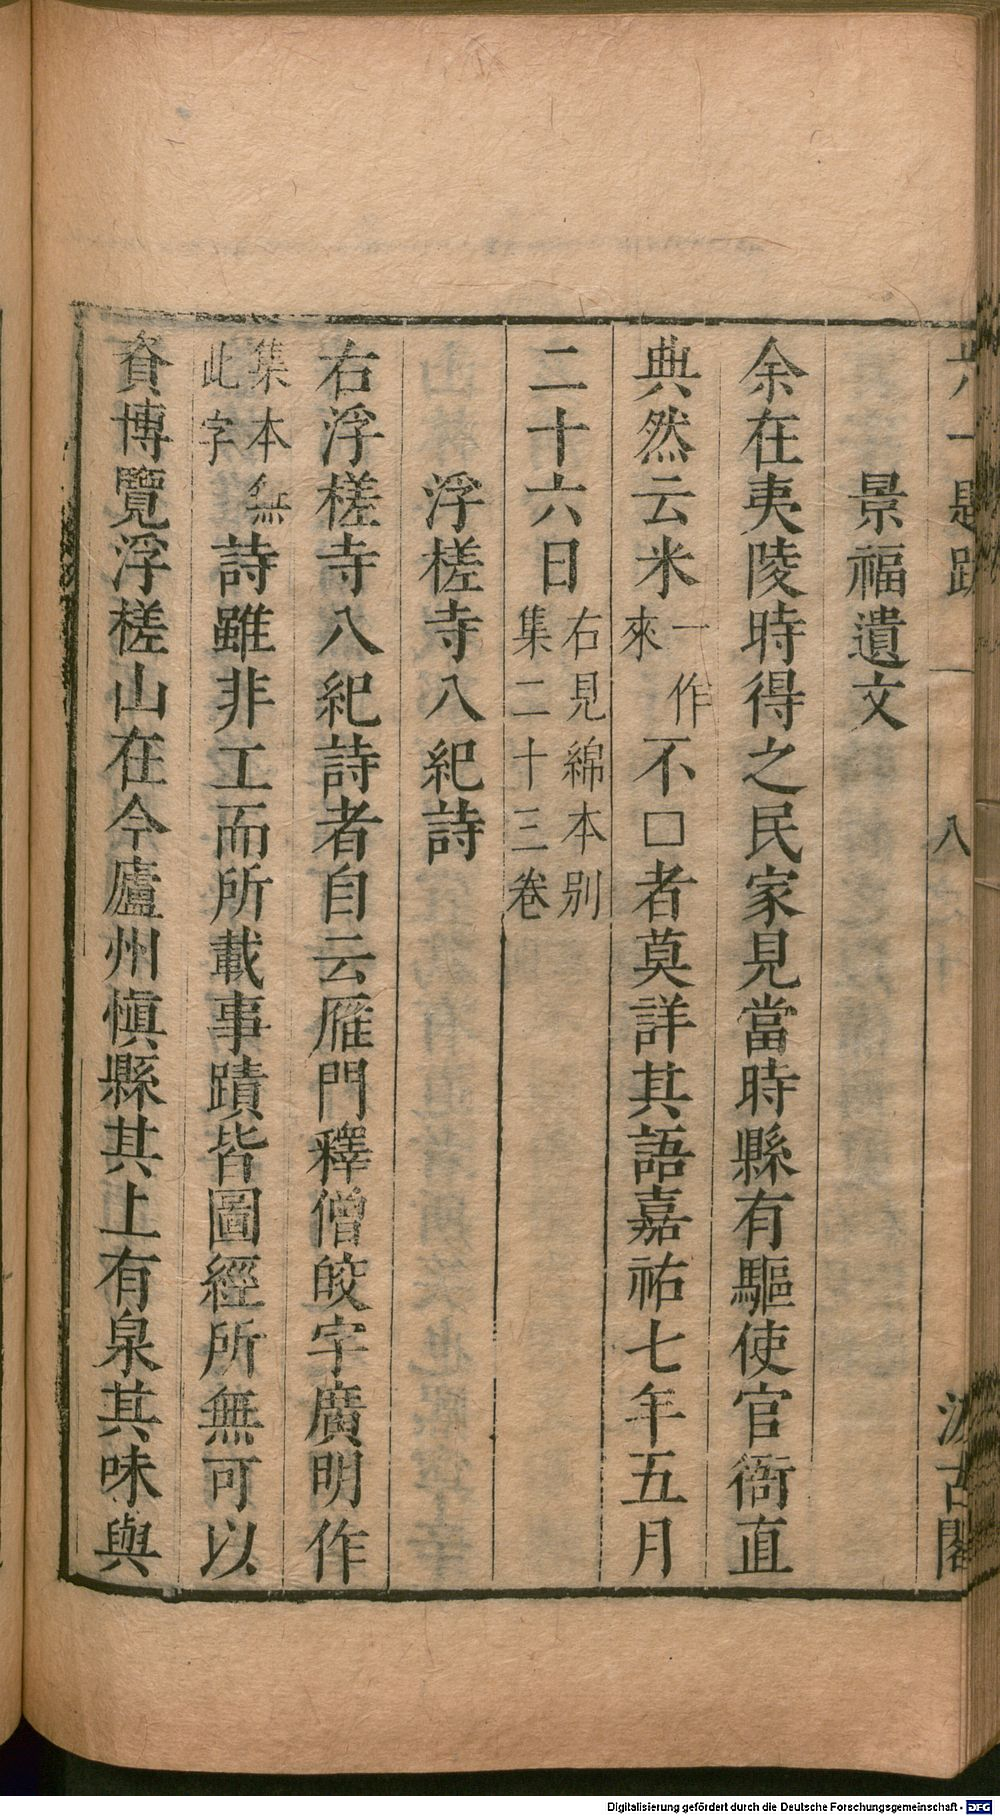 六一題跋 一 八 汲古閣
景福遺文
余在夷陵時得之民家見當時縣有驅使官衙直
典然云米一作來不□者莫詳其語嘉祐七年五月
二十六日右見綿本別集二十三卷
浮槎寺八紀詩
右浮槎寺八紀詩者自云雁門釋僧皎字廣明作
集本無此字詩雖非工而所載事蹟皆圖經所無可以
資博覽浮槎山在今廬州慎縣其上有泉其味與
Digitalisierung gefördert durch die Deutsche Forschungsgemeinschaft - DFG